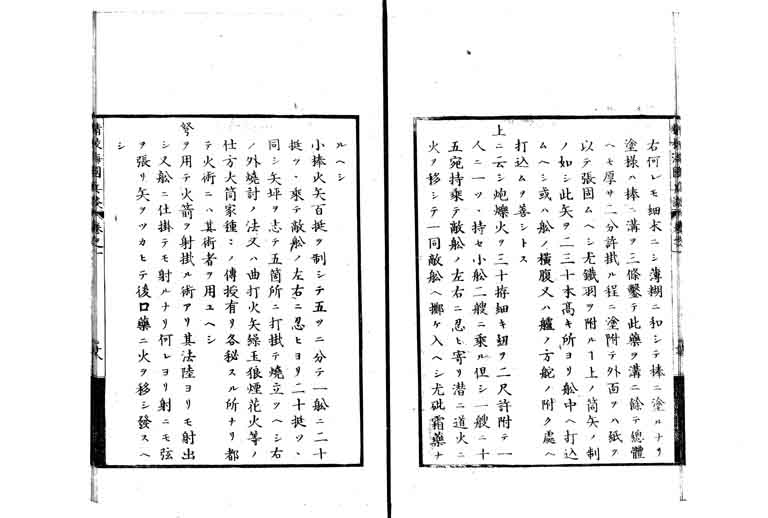 右何レモ細末ニシ薄糊ニ和シテ棒ニ塗ルナリ
塗様ハ棒ニ溝ヲ三條鑿テ此藥ヲ溝ニ餘テ總體
ヘモ厚サ二分許掛ル程ニ塗附テ外面ヲハ紙ヲ
以テ張固ムヘシ尤鐵羽ヲ附ルヿ上ノ筒矢ノ制
ノ如シ此矢ヲ二三十本高キ所ヨリ舩中ヘ打込
ムヘシ或ハ舩ノ橫腹又ハ艫ノ方舵ノ附ク處ヘ
打込ムヲ善シトス
上ニ云シ炮爍火ヲ三十拵細キ紐ヲ二尺許附テ一
人ニ一ツヽ持セ小舩二艘ニ乘ル但シ一艘ニ十
五宛持乘テ敵舩ノ左右ニ忍ヒ寄リ潜ニ道火ニ
火ヲ移シテ一同敵舩ヘ擲ケ入ヘシ尤砒霜藥ナ
ルヘシ
小捧火矢百挺ヲ制シテ五ツニ分テ一舩ニ二十
挺ツヽ乘テ敵舩ノ左右ニ忍ヒヨリ二十挺ツヽ
同シ矢坪ヲ志テ五箇所ニ打掛テ燒立ツヘシ右
ノ外燒討ノ法又ハ曲打火矢綠玉狼煙花火等ノ
仕方大筒家種〻ノ傳授有リ各秘スル所ナリ都
テ火術ニハ其術者ヲ用ユヘシ
弩ヲ用テ火箭ヲ射掛ル術アリ其法陸ヨリモ射出
シ又舩ニ仕掛テモ射ルナリ何レヨリ射ニモ弦
ヲ張リ矢ヲツカヒテ後口藥ニ火ヲ移シ發スヘ
シ
精校海國兵談 卷之一